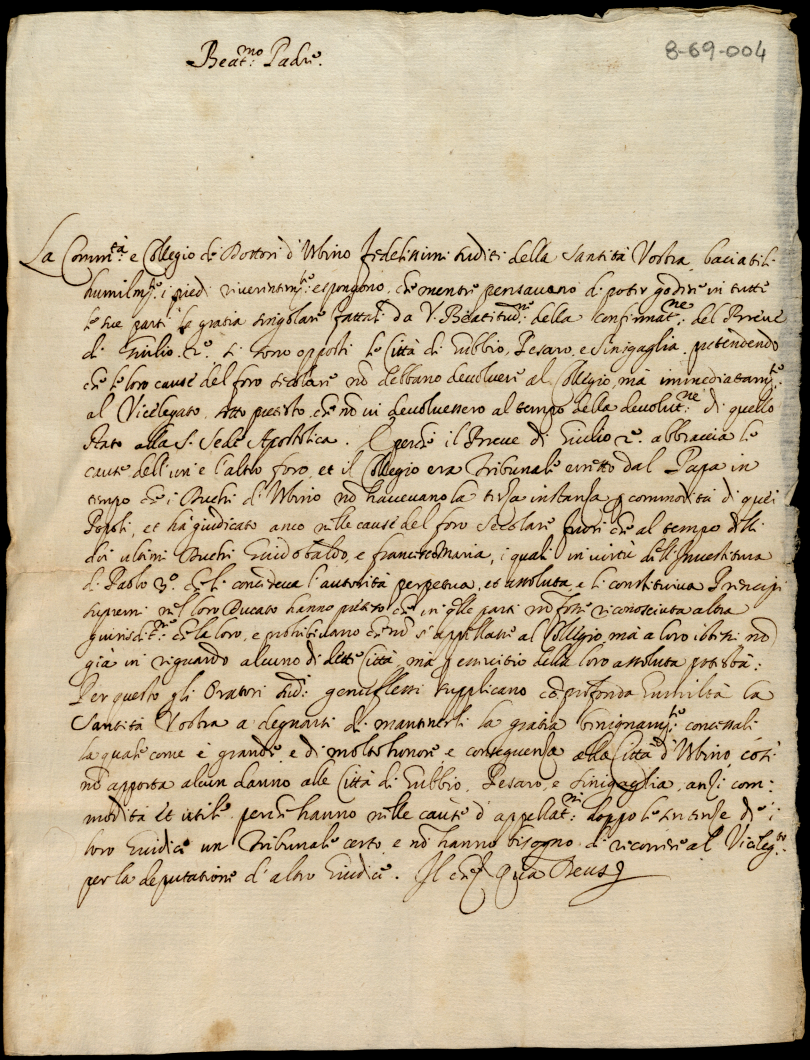 8-69-004
Beat.mo Padre.
La Comm.tà e Collegio de Dottori d'Urbino fedelissimi sudditi della Santità Vostra baciatili
humilm.te i piedi riverentem.te espongono, che mentre pensavano di poter godere in tutte
le sue parti la gratia singolare fattali da V. Beatitud.ne della confirmat.ne del Breve
di Giulio 2.o si sono opposti le Città di Gubbio, Pesaro, e Sinigaglia. pretendendo
che le loro cause del foro secolare nō debbano devolvere al Collegio, mà immediatam.te
al Vicelegato, sotto pretesto, che nō vi devolvessero al tempo della devolut.ne di quello
Stato alla S. Sede Apostolica. E perche il Breve di Giulio 2.o abbraccia le
cause dell'un' e l'altro foro, et il Collegio era Tribunale eretto dal Papa in
tempo che i Duchi di Urbino nō havevano la terza instanza p commodità di quei
Popoli, et hà giudicato anco nelle cause del foro Secolare fuori che al tempo delli
doi ultimi Duchi Guidobaldo, e Francesco Maria, i quali in virtù dell'Investitura
di Paolo 3.o che li concedeva l'autorità perpetua, et assoluta, e li constituiva Principi
supremi nel loro Ducato hanno preteso che in q̄lle parti nō fosse riconosciuta altra
giurisd.ne che la loro, e prohibivano che nō si appellasse al Collegio, mà a loro istessi nō
già in riguardo alcuno di dette Città, mà p essercitio della loro assoluta potestà:
Per questo gli Oratori sud.i genuflessi supplicano cō profonda humiltà la
Santità Vostra a degnarsi di mantenerli la gratia benignam.te concessali
la quale come è grande e di molto honore e conseguenza alla Città d'Urbino, così
nō apporta alcun danno alle Città di Gubbio, Pesaro, e Sinigaglia, anzi com-
modità et utile, perche hanno nelle cause d'appellat.ni doppo le sentenze de i
loro Giudici un Tribunale certo, e nō hanno bisogno di ricorrere al Viceleg.to
per la deputatione d'altro Giudice. Il che &c. Quā Deus &c.